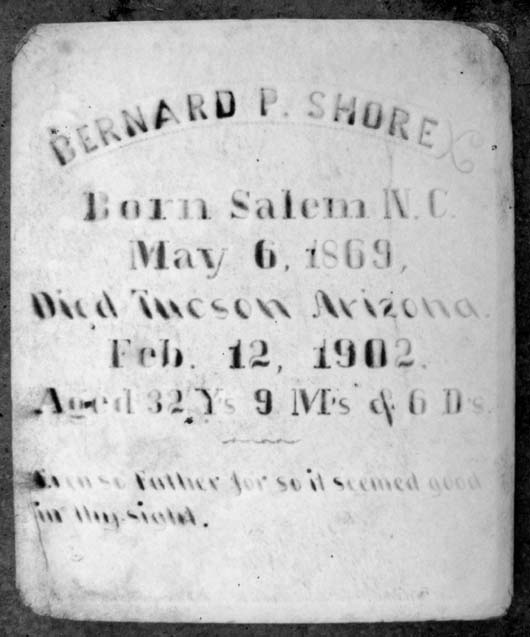 BERNARD P. SHORE
Born Salem N.C.
May 6, 1869,
Died Tucson Arizona.
Feb. 12, 1902.
Aged 32 Y's 9 M's & 6 D's.
Even so Father for so it seemed good
in thy sight.